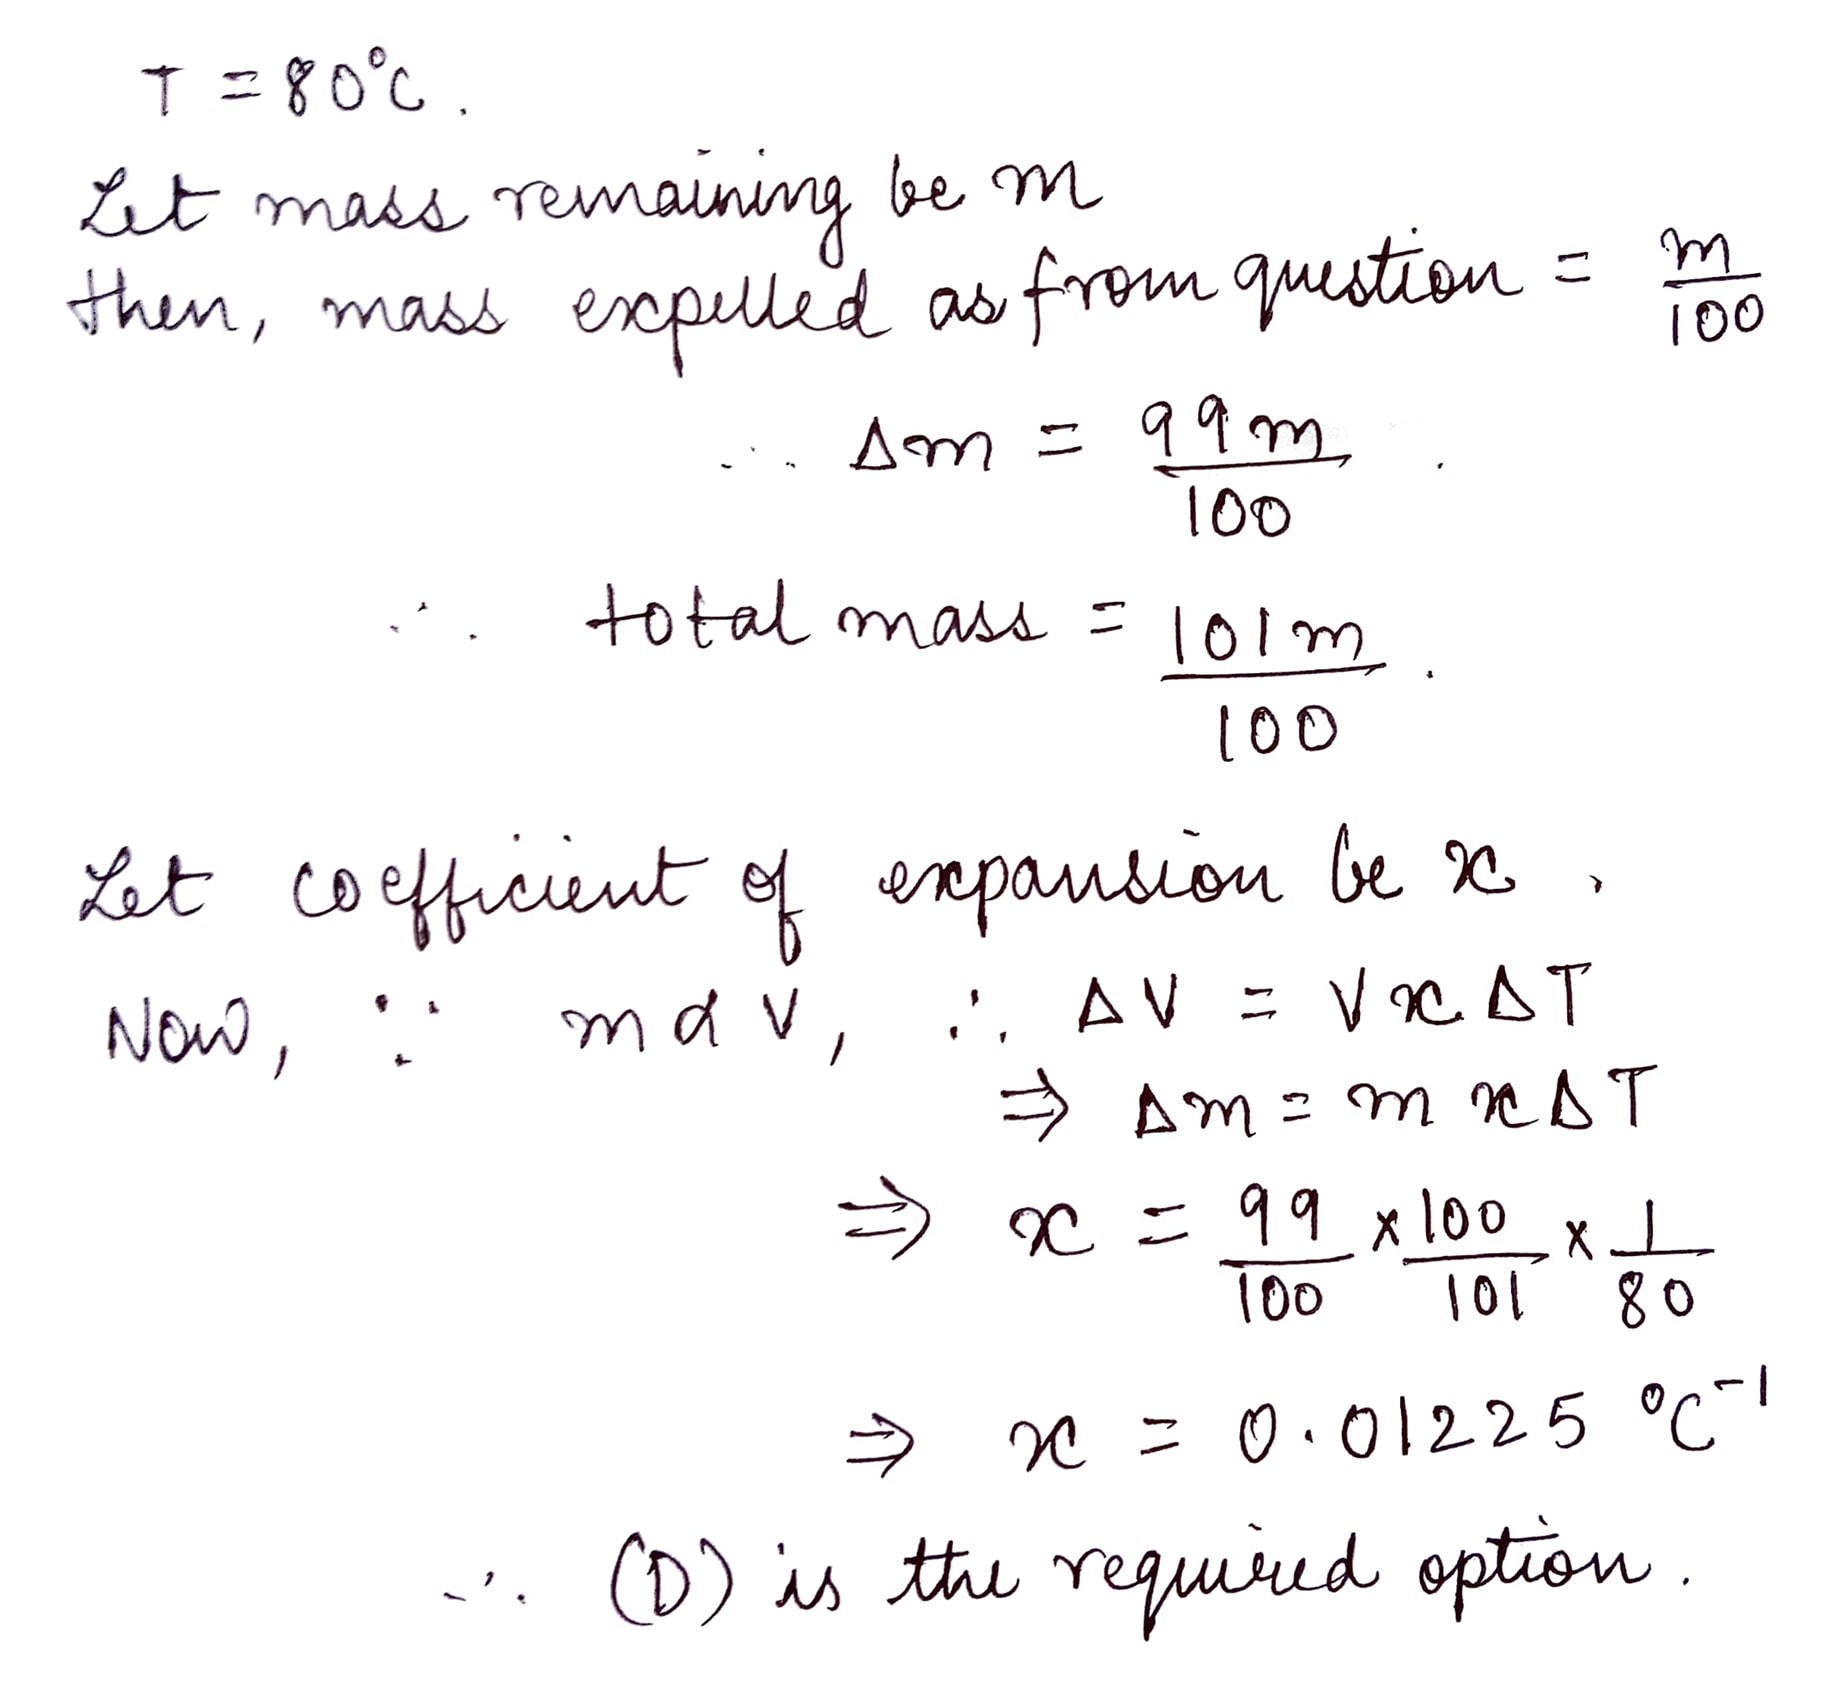 T = 80°C.
Let mass remaining be m
then, mass expelled as from question = m/100
∴ Δm = 99m/100.
∴ total mass = 101m/100.
Let coefficient of expansion be x.
Now, ∵ m α V, ∴ ΔV = VxΔT
⇒ Δm = m xΔT
⇒ x = 99/100 × 100/101 × 1/80
⇒ x = 0.01225 °C⁻¹
∴ (D) is the required option.